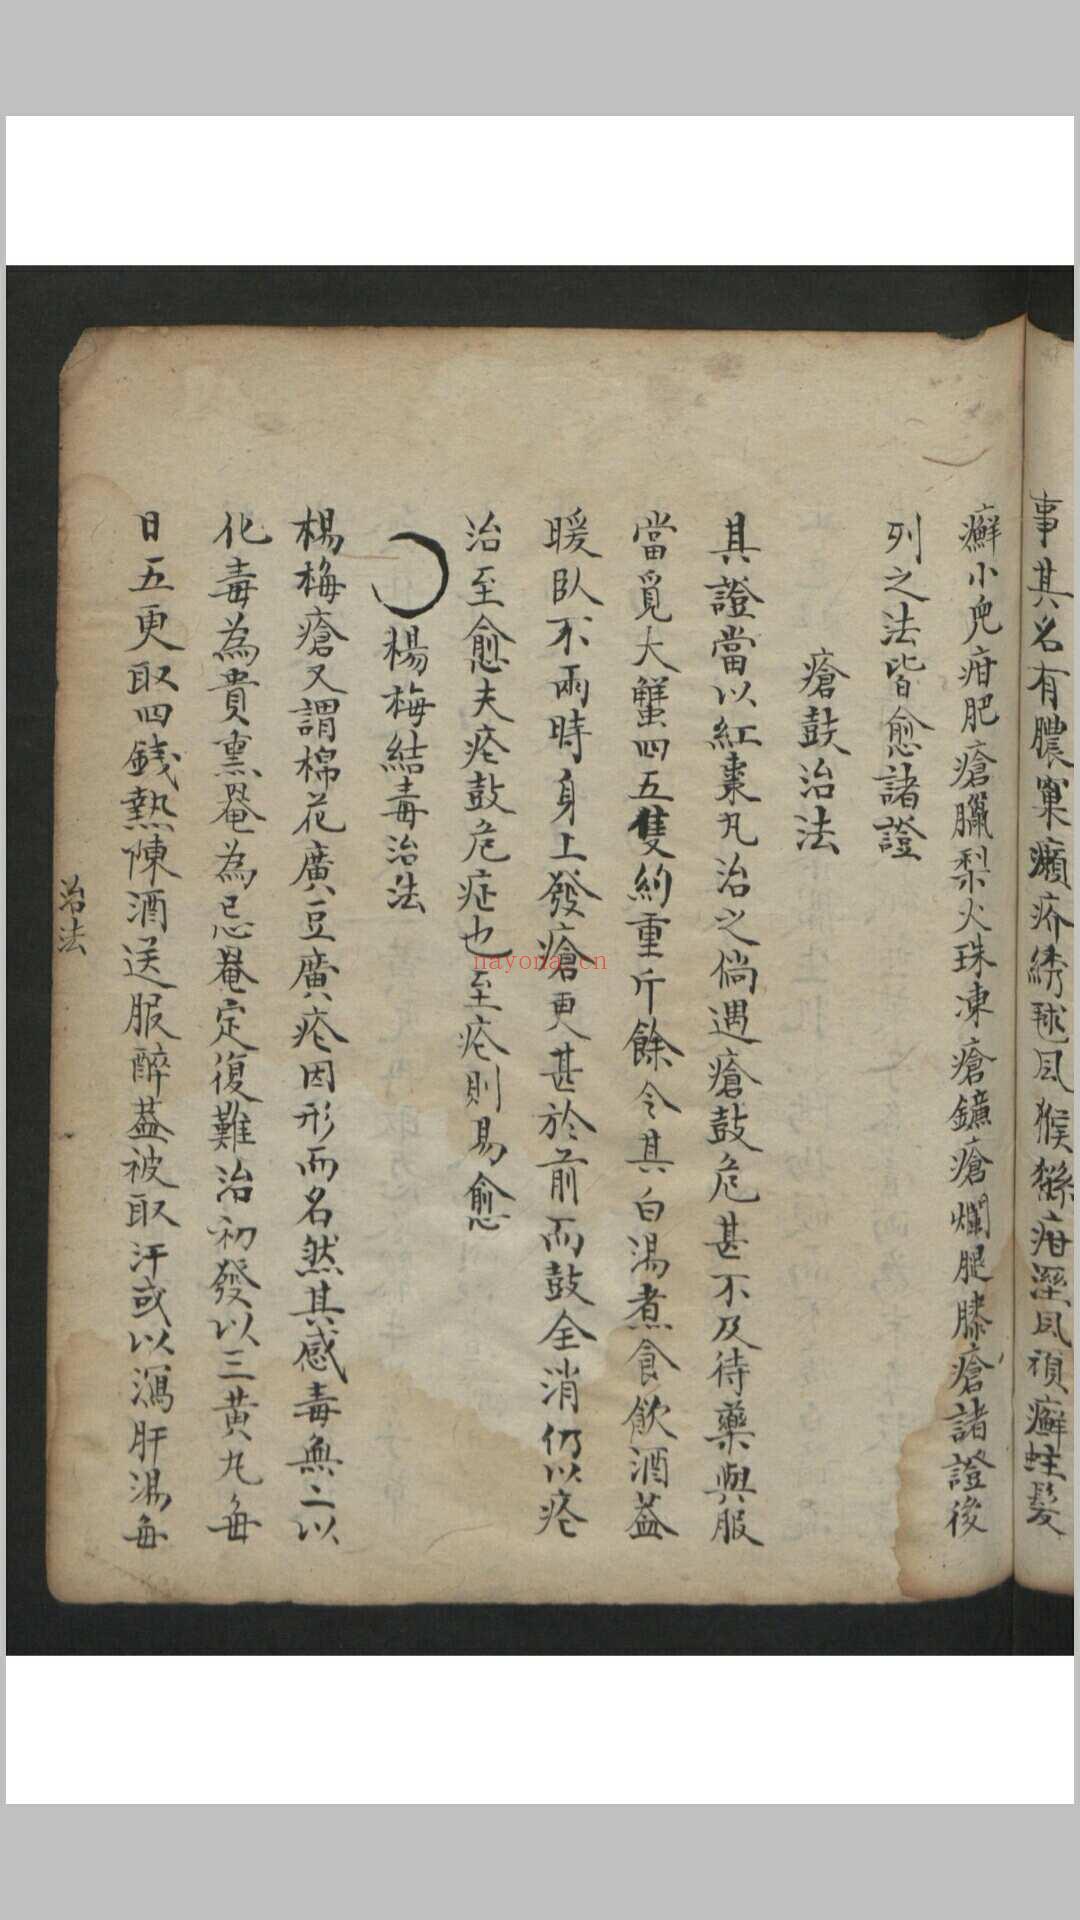 事其名有膿窠癩疥綉毬風猴猻疳溼風頑癬蛀髮
癬小兒疳肥瘡臘梨火珠凍瘡鐮瘡爛腿膝瘡諸證後
列之法皆愈諸證
瘡鼓治法
其證當以紅棗丸治之倘遇瘡鼓危甚不及待藥與服
當覓大蟹四五隻約重斤餘令其白湯煮食飲酒葢
暖臥不兩時身上發瘡更甚於前而鼓全消仍以疮
治至愈夫疮鼓危症也至疮則易愈
楊梅結毒治法
楊梅瘡又謂棉花廣豆廣疮因形而名然其感毒無二以
化毒為貴熏罨為忌罨定復難治初發以三黃丸每
日五更取四錢熱陳酒送服醉葢被取汗或以瀉肝湯每
治法
nayona.cn